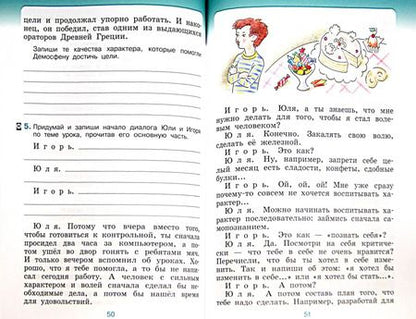 цели и продолжал упорно работать. И нако-
нец, он победил, став одним из выдающихся
ораторов Древней Греции.
Запиши те качества характера, которые помогли
Демосфену достичь цели.
5. Придумай и запиши начало диалога Юли и Игоря
по теме урока, прочитав его основную часть.
Игорь.
Юля.
Игорь.
Юля. Потому что вчера вместо того,
чтобы готовиться к контрольной, ты сначала
просидел два часа за компьютером, а по-
том ушёл во двор гонять с ребятами мяч.
И только вечером вспомнил об уроках. Хо-
рошо, что я тебе помогла, а то бы не напи-
сал сегодня работу. А человек с сильным
характером и волей сначала сделал бы не-
обходимые дела, а потом бы нашёл время
для удовольствий.
50
Игорь. Юля, а ты знаешь, что мне
нужно делать для того, чтобы я стал воле-
вым человеком?
Юля. Конечно. Закалять свою волю,
сделать её железной.
Игорь. Это как?
Юля. Ну, например, запрети себе це-
лый месяц есть сладости, конфеты, сдобные
булки...
Игорь. Ой, ой, ой! Мне уже сразу
почему-то совсем не хочется воспитывать ха-
рактер.
Юля. Можно начинать воспитывать ха-
рактер последовательно: займись сначала са-
мопознанием.
Игорь. Это как — «познать себя»?
Юля. Да. Посмотри на себя критиче-
ски — что тебе в себе не очень нравится?
Перечисли, что бы ты хотел в себе изме-
нить. Так и напиши об этом: «я хотел бы
изменить в себе...» или «я хотел бы стать...».
Игорь. А потом?
Юля. А потом составь план того, что
тебе надо сделать. Например, разработай для
51